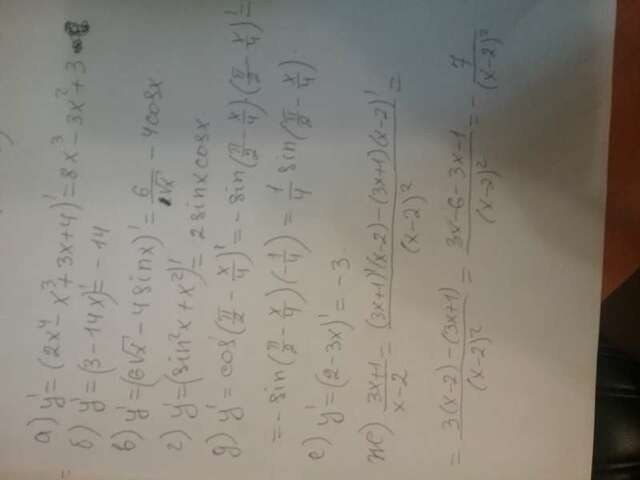 а) y' = (2x⁴ - x³ + 3x + 4)' = 8x³ - 3x² + 3
б) y' = (3 - 14x)' = - 14
в) y' = (6√x - 4 sinx)' = 6/(2√x) - 4cosx
г) y' = (sin²x + x²)' = 2 sinx cosx
д) y' = cos'(π/2 - x/4)' = - sin(π/2 - x/4)·(π/2 - x/4)' =
= - sin(π/2 - x/4)(-1/4) = 1/4 sin(π/2 - x/4).
е) y' = (2 - 3x)' = - 3.
ж) (3x+1)/(x-2) = ((3x+1)'(x-2) - (3x+1)(x-2)')/(x-2)² =
= (3(x-2) - (3x+1))/(x-2)² = (3x - 6 - 3x - 1)/(x-2)² = - 7/(x-2)²